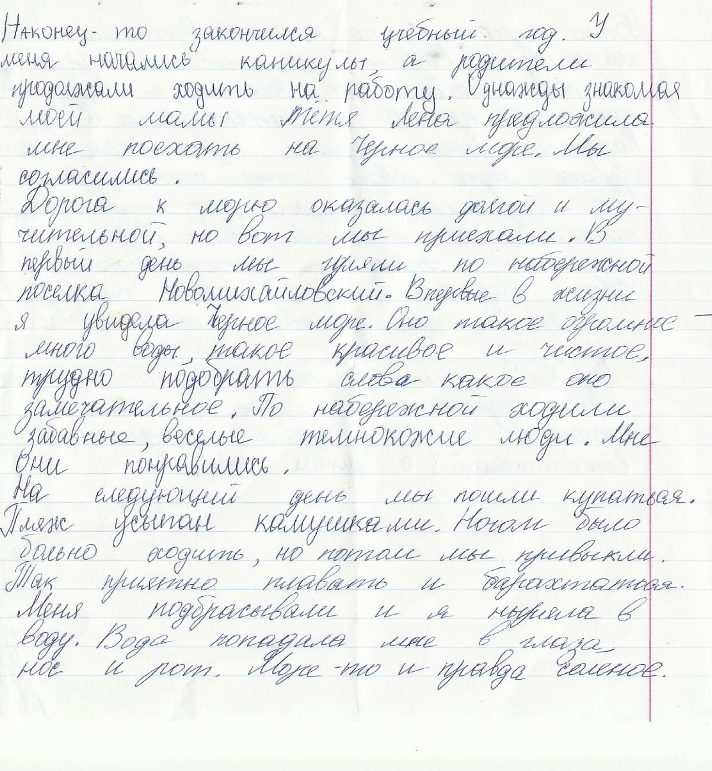 Наконец-то закончился учебный год. У
меня начались каникулы, а родители
продолжали ходить на работу. Однажды знакомая
моей мамы тётя Лена предложила
мне поехать на Черное море. Мы
согласились.
Дорога к морю оказалась долгой и му-
чительной, но вот мы приехали. В
первый день мы гуляли по набережной
поселка Новомихайловский. Впервые в жизни
я увидела Черное море. Оно такое огромное –
много воды, такое красивое и чистое,
трудно подобрать слова какое оно
замечательное. По набережной ходили
забавные, веселые темнокожие люди. Мне
они понравились.
На следующий день мы пошли купаться.
Пляж усыпан камушками. Ногам было
больно ходить, но потом мы привыкли.
Так приятно плавать и барахтаться.
Меня подбрасывали и я ныряла в
воду. Вода попадала мне в глаза,
нос и рот. Море-то и правда соленое.